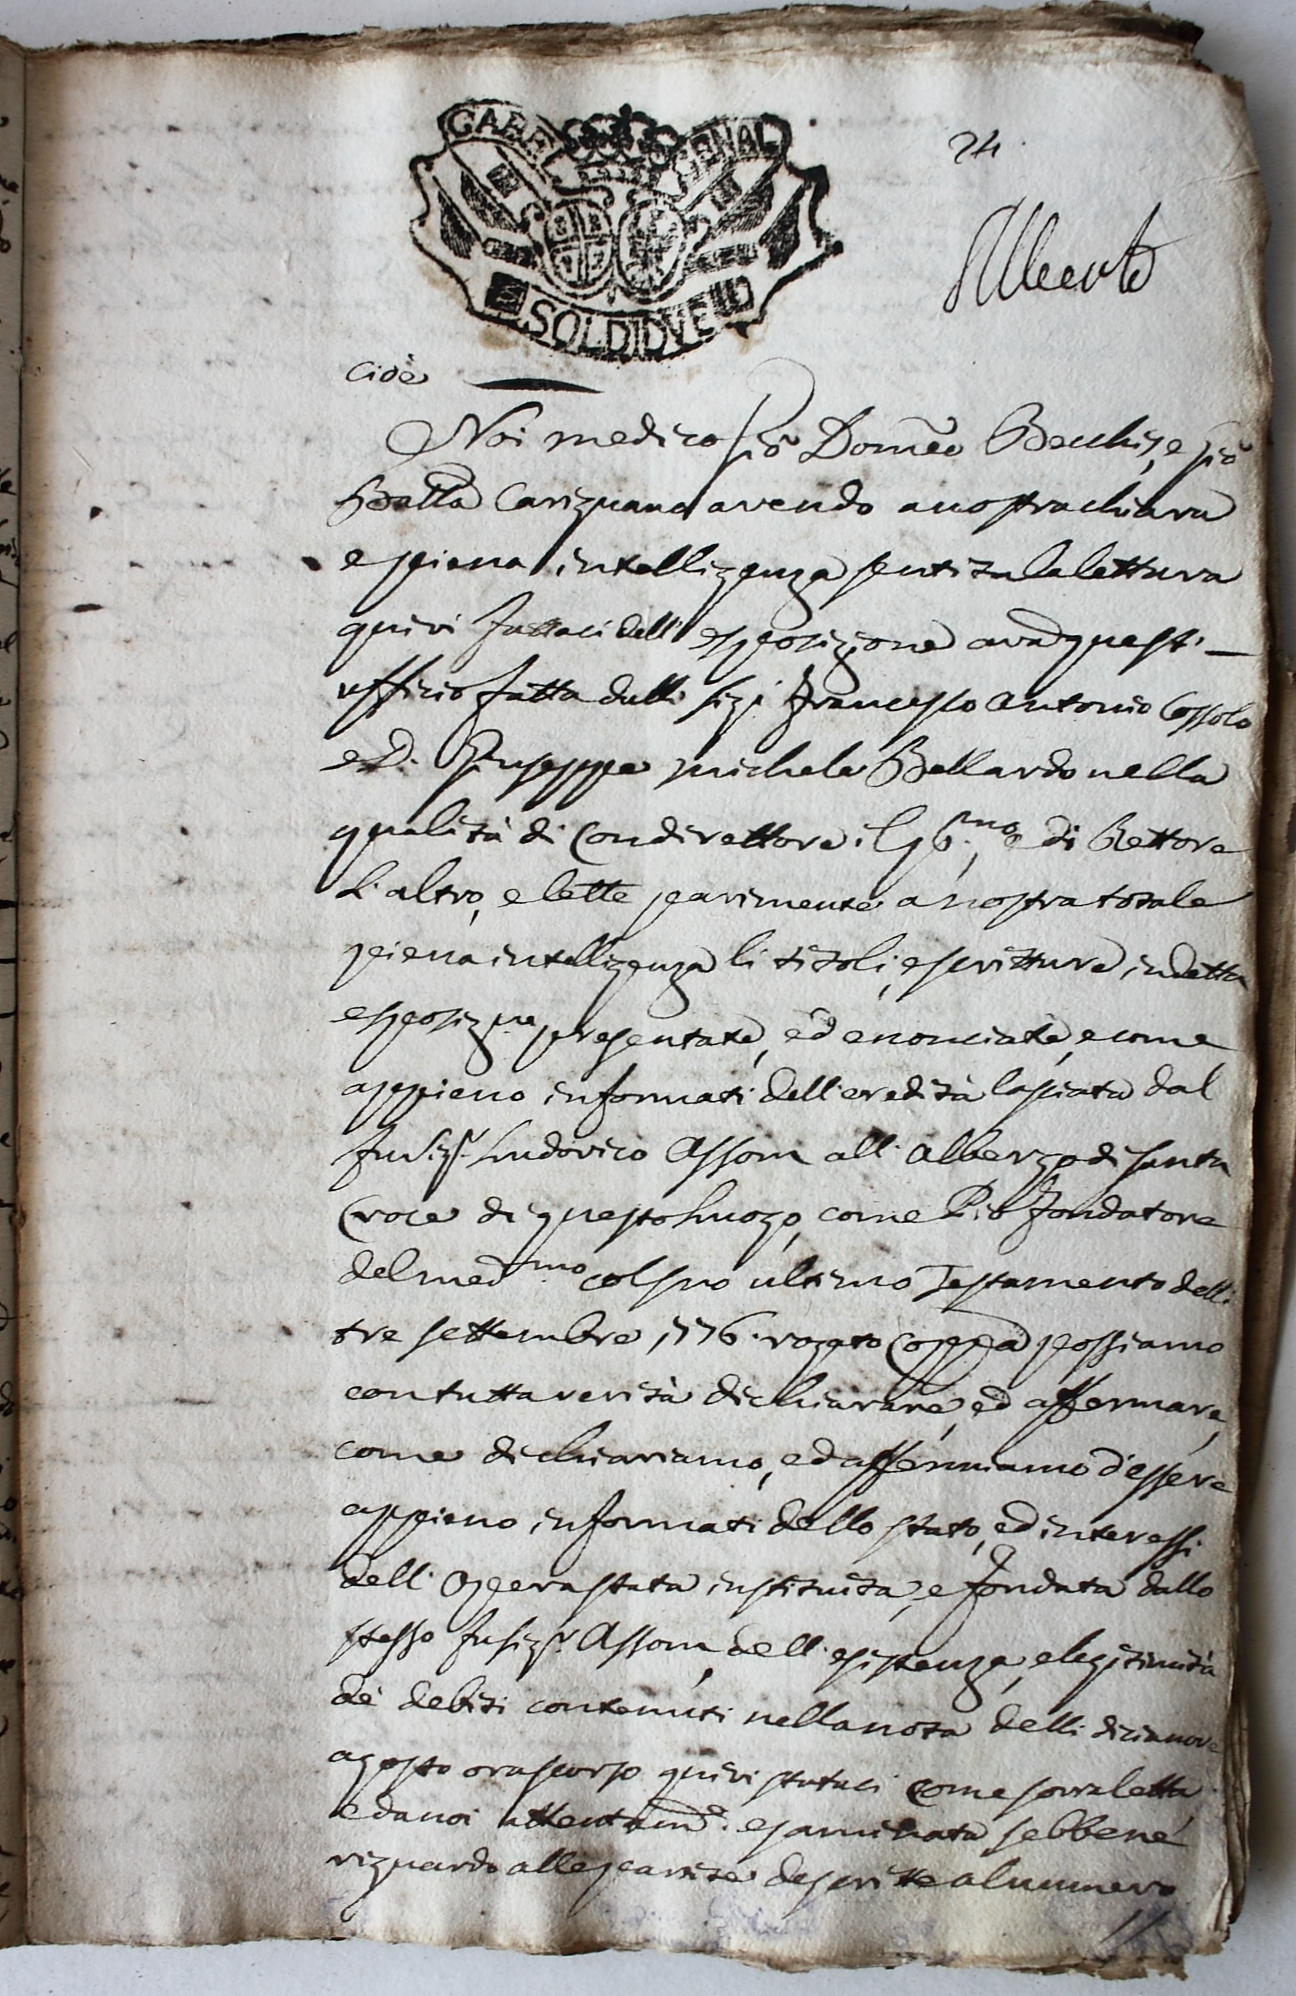 GABE GENAL
24
SOLDI DVE
cioè
Noi medico Gio Domeo Becchis, e Gio
Batta Carignana avendo a nostra chiara
e piena intelligenza sentita la lettura
quivi fattaci dell'esposizione avanti quest'
ufficio fatta dalli sigi Francesco Antonio Cossolo
e D. Giuseppe Michele Bellardo nella
qualità di Condirettore il pmo, e di Rettore
L'altro, e lette parimente a nostra totale
piena intelligenza li titoli, e scritture, in detta
esposizne presentate, ed enonciate, e come
appieno informati dell'eredità lasciata dal
fu sigr Ludovico Assom all'albergo di Santa
Croce di questo Luogo, come Pio fondatore
del medmo col suo ultimo Testamento delli
tre settembre 1776. rogato Coppa possiamo
con tutta verità dichiarare, ed affermare,
come dichiariamo, ed affermiamo d'essere
appieno informati dello stato, ed interessi
dell'Opera stata instituita, e fondata dallo
stesso fu sigr Assom, dell'esistenza, e legitimità
de' debiti contenuti nella nota delli dicianove
agosto ora scorso quivi stataci come sovra letta
e da noi attentame. esaminata sebbene
riguardo alle partite descritte al numero